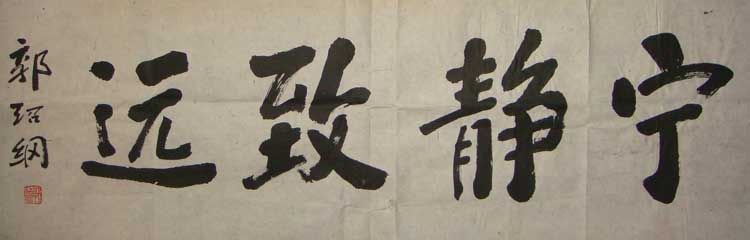 宁静致远
郭绍纲